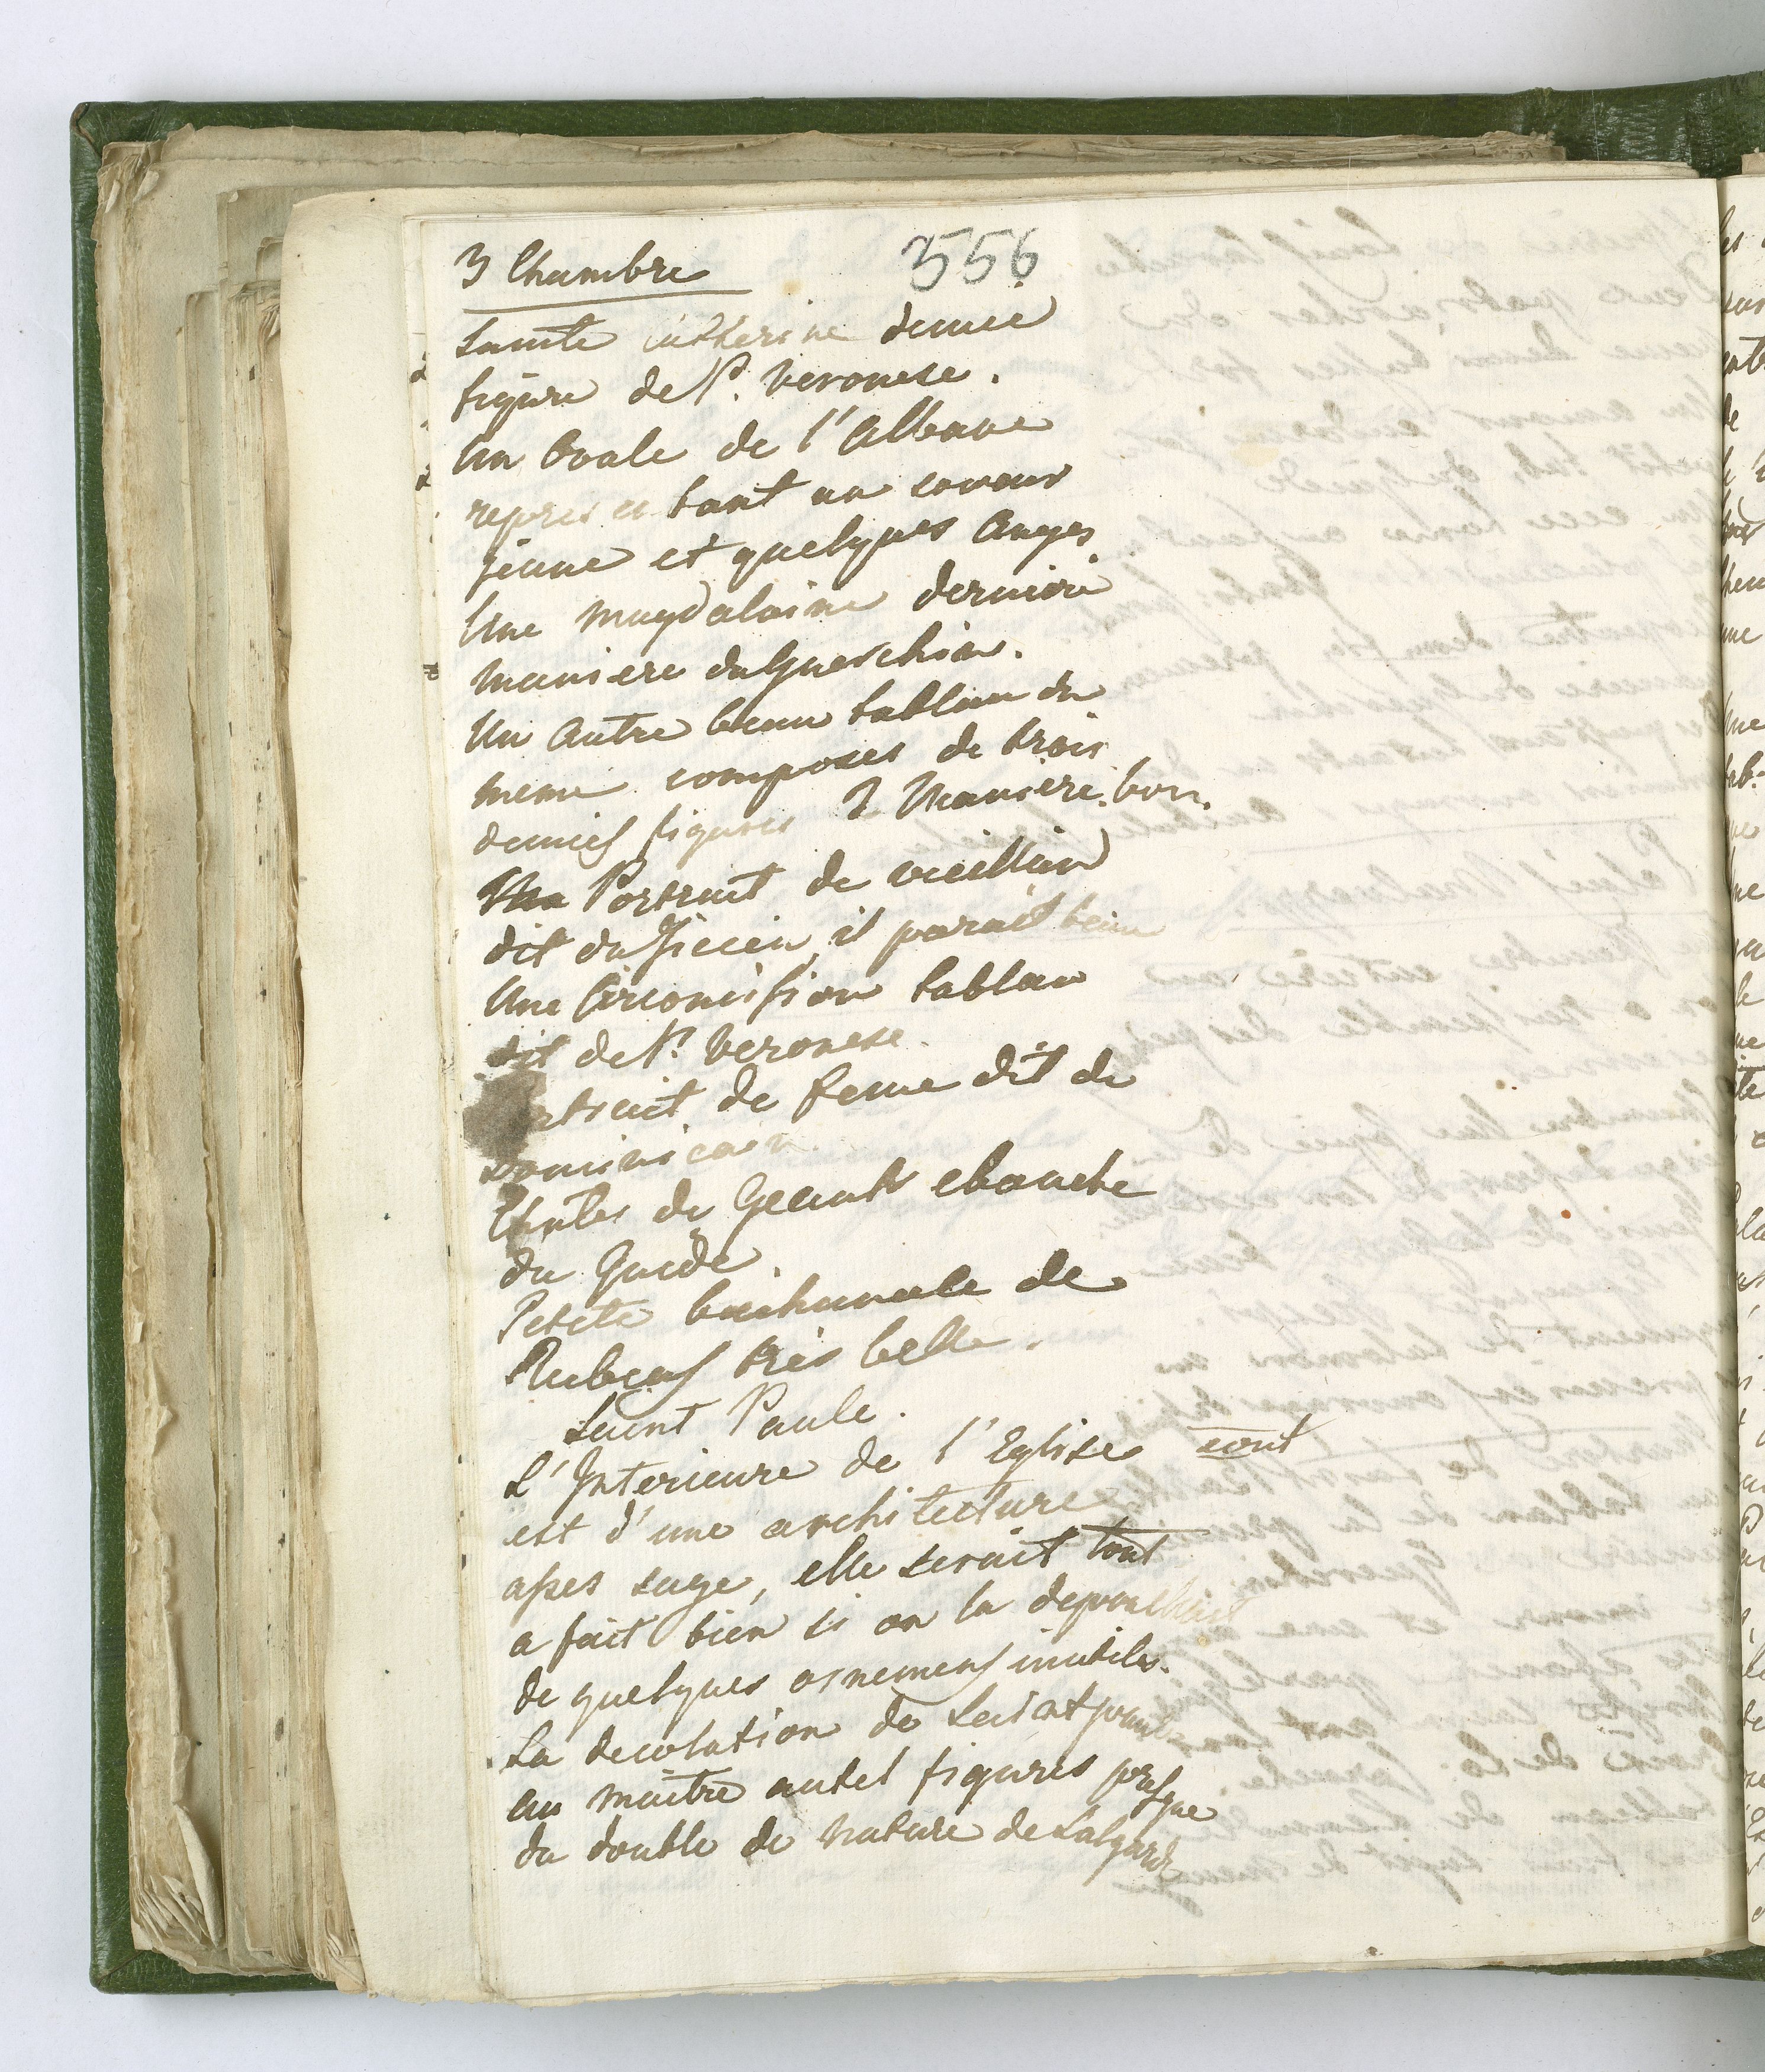 3 Chambre
356
Sainte Catherine demie
figure de P. Veronese.
Un Ovale de l'Albane
representant un sauveur
jeune et quelques Anges
Une magdalaine derniere
maniere du Guerchin.
Un Autre beau tableau du
meme composes de trois
demies figures 2 Maniere. bon.
Un Portrait de vieillard
dit du Ticien, il parait beau
Une Circoncision tableau
dit de P. Veronese.
Portrait de feme dit du
Dominicain.
Chutes de Geants ebauche
du Guide.
Petite bachanale de
Rubens très belle.
Saint Paule.
L'Interieure de l'Eglise
est d'une architecture
asses sage, elle serait tout
a fait bien si on la depouillait
de quelques ornemens inutiles.
La decolation de Saint paul
au maitre autel figures presque
du double de nature de Lalgarde